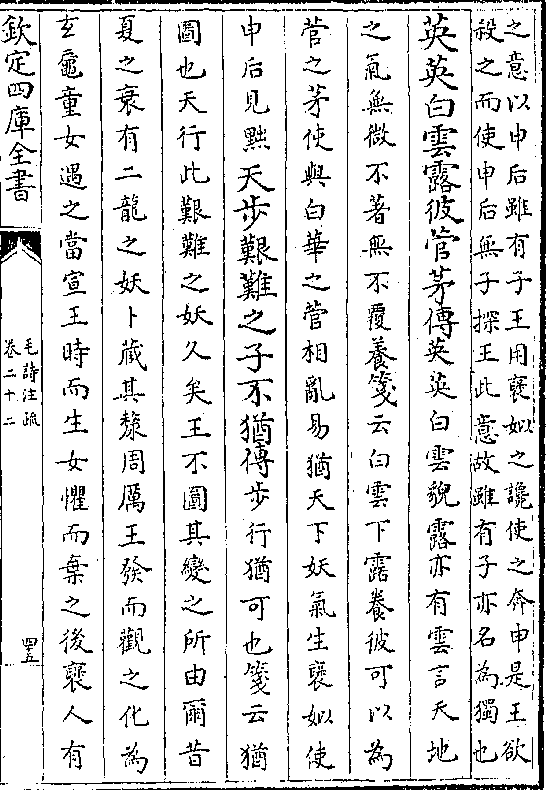 之意以申后雖有子王用褒姒之讒使之奔申是王欲
殺之而使申后無子探王此意故雖有子亦名為獨也
英英白雲露彼菅茅傳英英白雲貌露亦有雲言天地
之氣無微不著無不覆養箋云白雲下露養彼可以為
菅之茅使與白華之菅相亂易猶天下妖氣生褒姒使
申后見黜天步艱難之子不猶傳步行猶可也箋云猶
圖也天行此艱難之妖久矣王不圖其變之所由爾昔
夏之衰有二龍之妖卜藏其漦周厲王發而觀之化為
玄黿童女遇之當宣王時而生女懼而棄之後褒人有
欽定四庫全書
毛詩注疏
卷二十二
四五